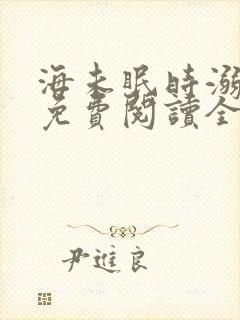 海未眠時溺
免費閱讀全
尹進良